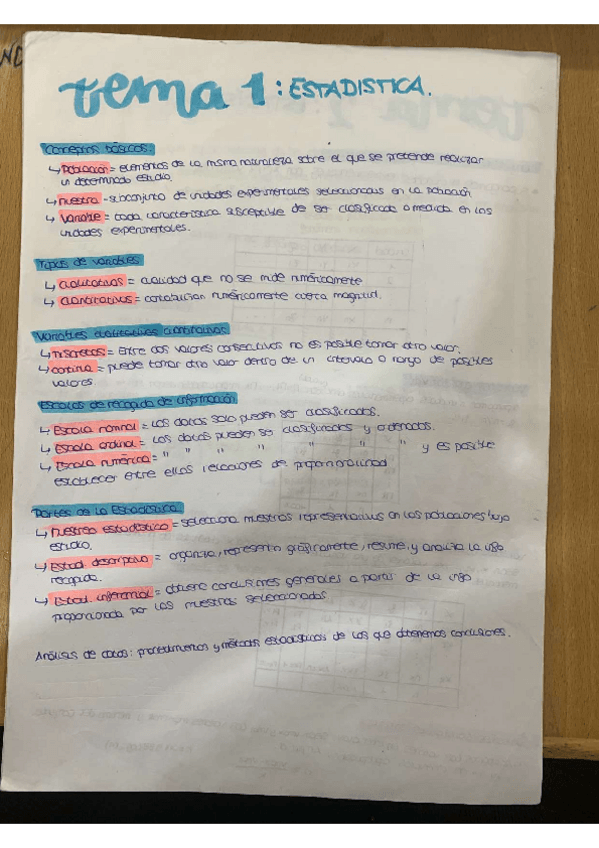 tema 1: ESTADISTICA.
Conceptos básicos:
↳ Población = elementos de la misma naturaleza sobre el que se pretende realizar
un determinado estudio.
↳ muestra - subconjunto de unidades experimentales seleccionadas en la población
↳ Variable = toda característica susceptible de ser clasificada o medida en las
unidades experimentales.
Tipos de variables
↳ Cualitativas = cualidad que no se mide numéricamente
↳ Cuantitativas = numéricamente cierta magnitud.
Variables cualitativas cuantitativas
↳ Discretas = Entre dos valores consecutivos no es posible tomar otro valor.
↳ continua = puede tomar otro valor dentro de un intervalo o rango de posibles
valores.
Escalas de recogida de información
↳ Escala nominal = Los datos solo pueden ser clasificados.
↳ Escala ordinal = Los datos pueden ser clasificados y ordenados.
↳ Escala numérica = " " " " " " " y es posible
establecer entre ellos relaciones de proporcionalidad
Partes de la Estadística
↳ muestreo estadístico = selecciona muestras representativas en las poblaciones bajo
estudio.
↳ Estad. descriptiva = organiza, representa gráficamente, resume, y analiza la info
recogida.
↳ Estad. inferencial = obtiene conclusiones generales a partir de la info
proporcionada por las muestras seleccionadas
Análisis de datos: procedimientos y métodos estadísticos de los que obtenemos conclusiones.